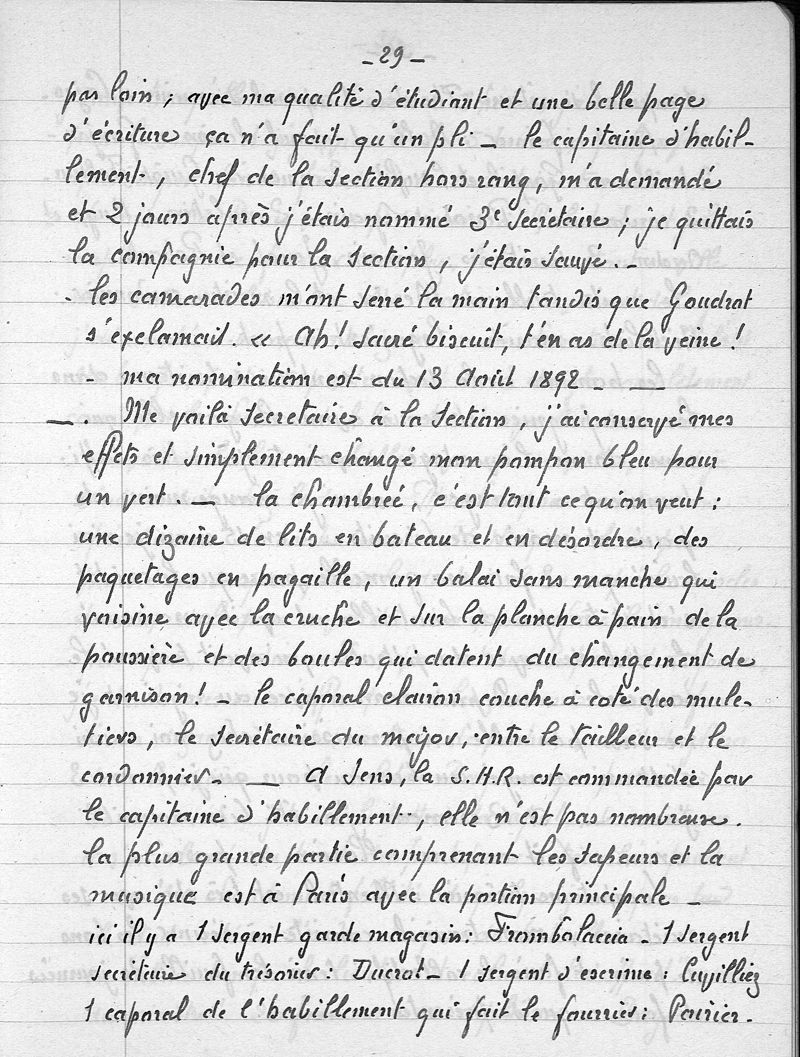 - 29 -
pas loin ; avec ma qualité d'étudiant et une belle page
d'écriture ça n'a fait qu'un pli _ le capitaine d'habil-
lement, chef de la section hors rang, m'a demandé
et 2 jours après j'étais nommé 3e secrétaire ; je quittais
la compagnie pour la section, j'étais sauvé. -
- les camarades m'ont serré la main tandis que Goudrot
s'exclamait. « Ah ! sacré biscuit, t'en as de la veine !
- ma nomination est du 13 Août 1892 - _
_ . Me voilà secretaire à la section, j'ai conservé mes
effets et simplement changé mon pompon bleu pour
un vert. _ la chambreé, c'est tout ce qu'on veut :
une dizaine de lits en bateau et en désordre, des
paquetages en pagaille, un balai sans manche qui
voisine avec la cruche et sur la planche à pain de la
poussière et des boules qui datent du changement de
garnison ! - le caporal clairon couche à coté des mule-
tiers, le secrétaire du major, entre le tailleur et le
cordonnier. _ A Sens, la S.H.R. est commandée par
le capitaine d'habillement, elle n'est pas nombreuse.
la plus grande partie comprenant les sapeurs et la
musique est à Paris avec la portion principale _
ici il y a 1 sergent garde magasin : Frombolaccia - 1 sergent
secrétaire du trésorier : Ducrot - 1 sergent d'escrime : Cuvilliez
1 caporal de l'habillement qui fait le fourrier : Poirier -